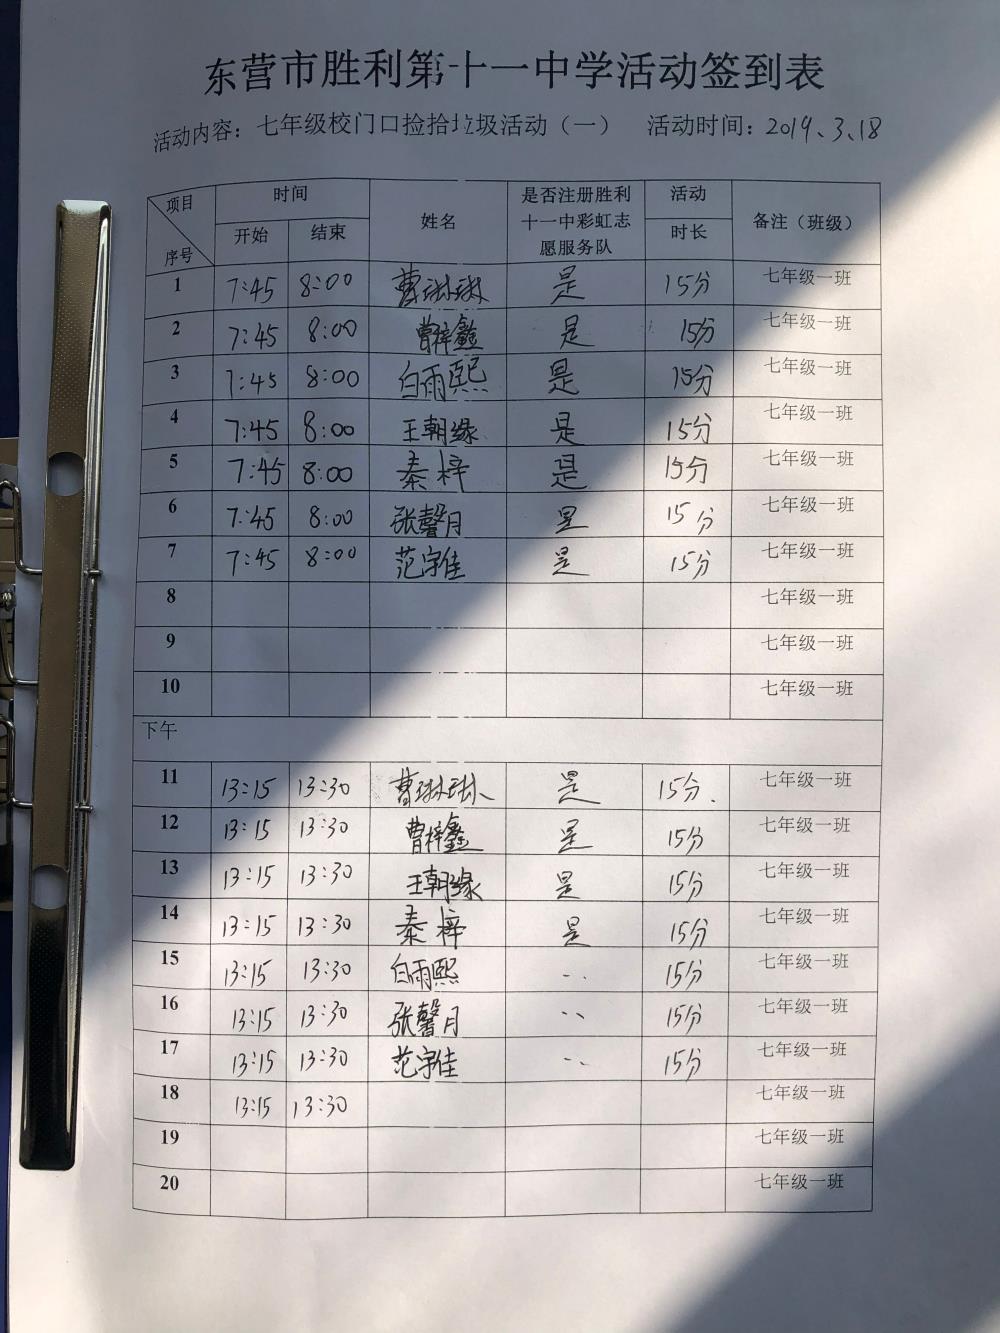 东营市胜利第十一中学活动签到表
活动内容：七年级校门口捡拾垃圾活动（一） 活动时间：2019、3、18
项目 序号 时间 姓名 是否注册胜利十一中彩虹志愿服务队 活动时长 备注（班级）
开始 结束
1 7:45 8:00 曹琳琳 是 15分 七年级一班
2 7:45 8:00 曹梓鑫 是 15分 七年级一班
3 7:45 8:00 白雨熙 是 15分 七年级一班
4 7:45 8:00 王朝缘 是 15分 七年级一班
5 7:45 8:00 秦梓 是 15分 七年级一班
6 7:45 8:00 张馨月 是 15分 七年级一班
7 7:45 8:00 范宇佳 是 15分 七年级一班
8 七年级一班
9 七年级一班
10 七年级一班
下午
11 13:15 13:30 曹琳琳 是 15分. 七年级一班
12 13:15 13:30 曹梓鑫 是 15分 七年级一班
13 13:15 13:30 王朝缘 是 15分 七年级一班
14 13:15 13:30 秦梓 是 15分 七年级一班
15 13:15 13:30 白雨熙 、、 15分 七年级一班
16 13:15 13:30 张馨月 、、 15分 七年级一班
17 13:15 13:30 范宇佳 、、 15分 七年级一班
18 13:15 13:30 七年级一班
19 七年级一班
20 七年级一班